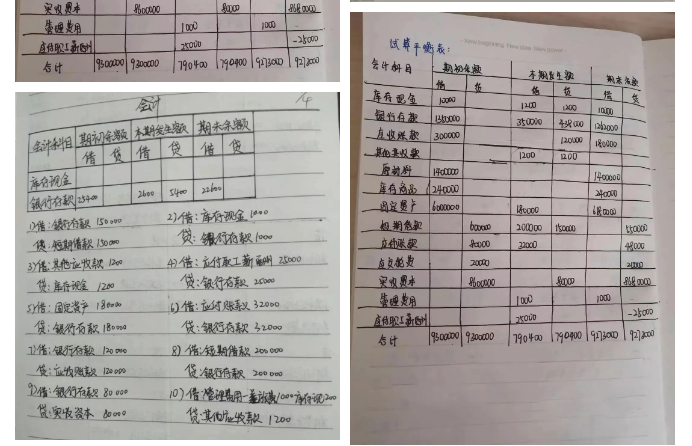 实收资本 8600000 80000 8680000
管理费用 1000 1000
应付职工薪酬 25000 -25000
合计 9300000 9300000 790400 790400 9273000 9273000
会计
会计科目 期初余额 本期发生额 期末余额
借 贷 借 贷 借 贷
库存现金
银行存款 25400 2600 5400 22600
1)借:银行存款 150000
贷:短期借款 150000
2)借:库存现金 1000
贷:银行存款 1000
3)借:其他应收款 1200
贷:库存现金 1200
4)借:应付职工薪酬 25000
贷:银行存款 25000
5)借:固定资产 180000
贷:银行存款 180000
6)借:应付账款 32000
贷:银行存款 32000
7)借:银行存款 120000
贷:应收账款 120000
8)借:短期借款 200000
贷:银行存款 200000
9)借:银行存款 80000
贷:实收资本 80000
10)借:管理费用 1000 库存现200
贷:其他应收款 1200
试算平衡表:
会计科目 期初余额 本期发生额 期末余额
借 贷 借 贷 借 贷
库存现金 10000 1200 1200 10000
银行存款 350000 438000
应收账款 300000 120000 180000
其他应收款 1200 1200
原材料 1400000 1400000
库存商品 240000 240000
固定资产 6000000 180000
短期借款 600000 200000 150000 550000
应付账款 80000 32000 48000
应交税费 20000 20000
实收资本 8600000 80000 8680000
管理费用 1000 1000
应付职工薪酬 25000 -25000
合计 9300000 9300000 790400 790400 9273000 9273000